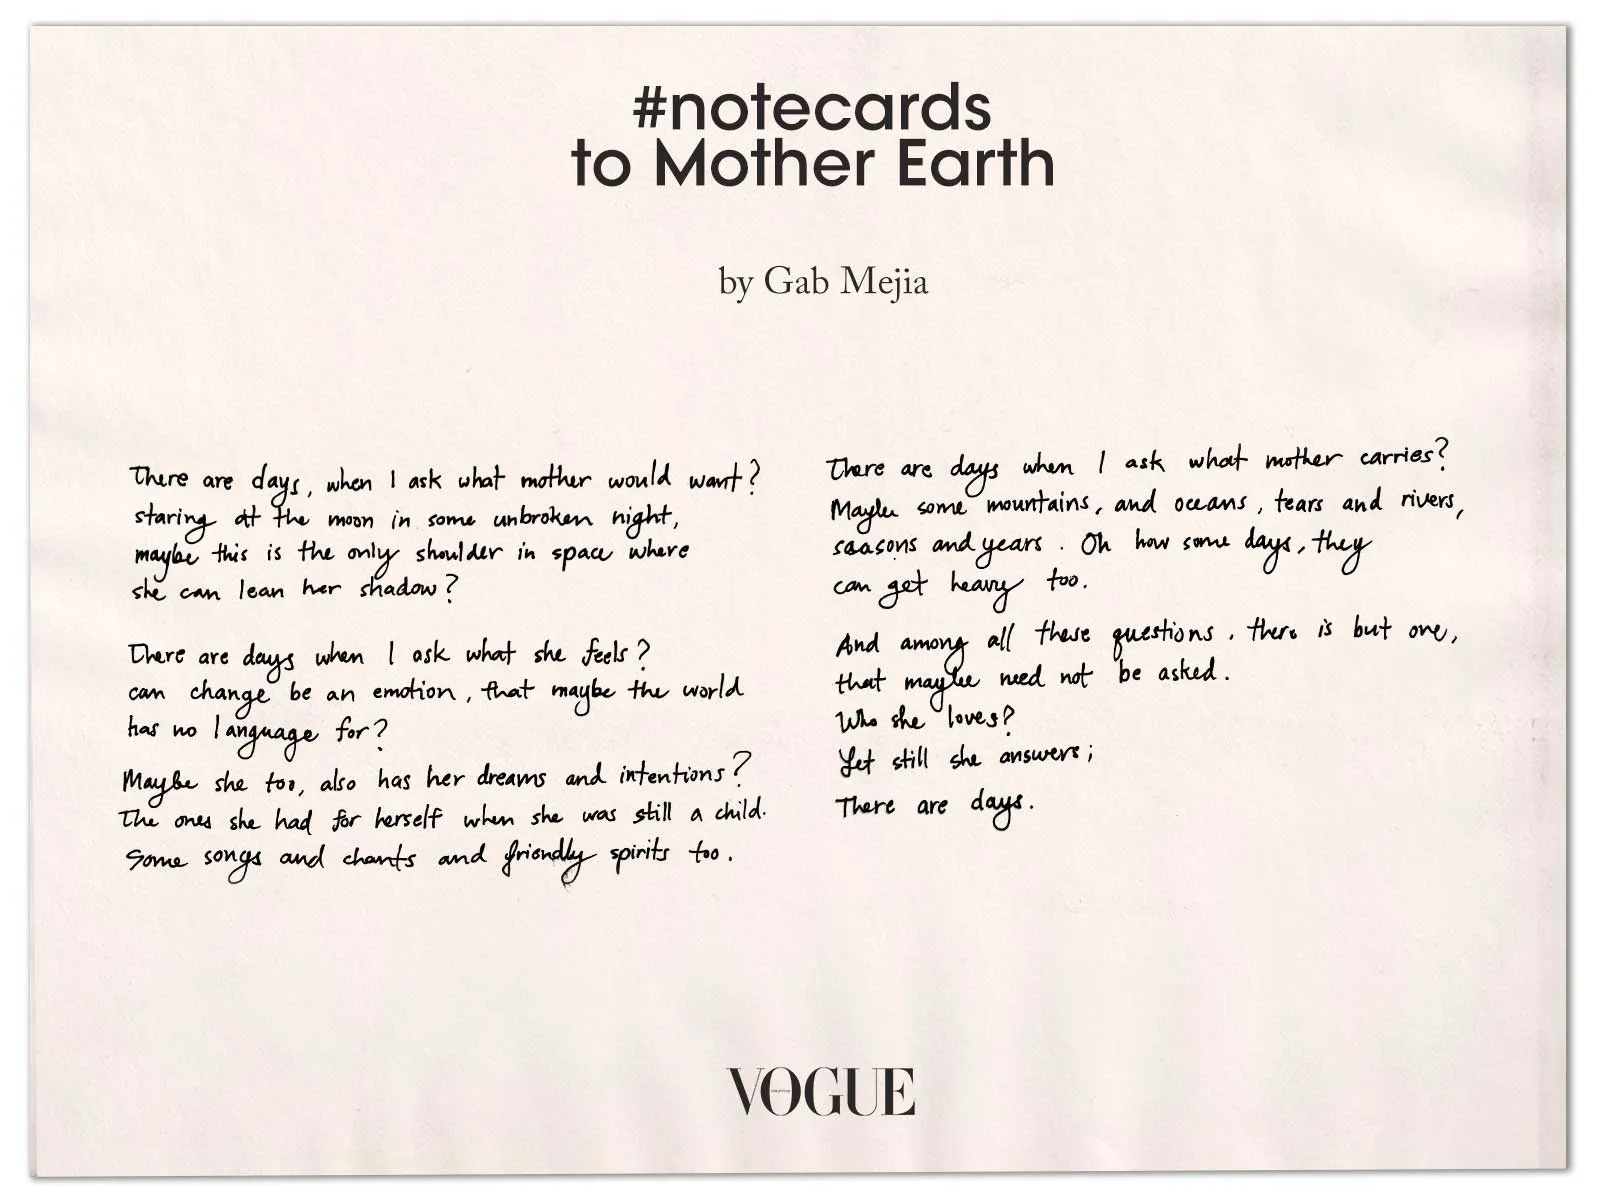 #notecards
to Mother Earth
by Gab Mejia
There are days, when I ask what mother would want?
staring at the moon in some unbroken night,
maybe this is the only shoulder in space where
she can lean her shadow?
There are days when I ask what she feels?
can change be an emotion, that maybe the world
has no language for?
Maybe she too, also has her dreams and intentions?
The ones she had for herself when she was still a child.
Some songs and chants and friendly spirits too.
There are days when I ask what mother carries?
Maybe some mountains, and oceans, tears and rivers,
seasons and years. Oh how some days, they
can get heavy too.
And among all these questions, there is but one,
that maybe need not be asked.
Who she loves?
Yet still she answers;
There are days.
VOGUE